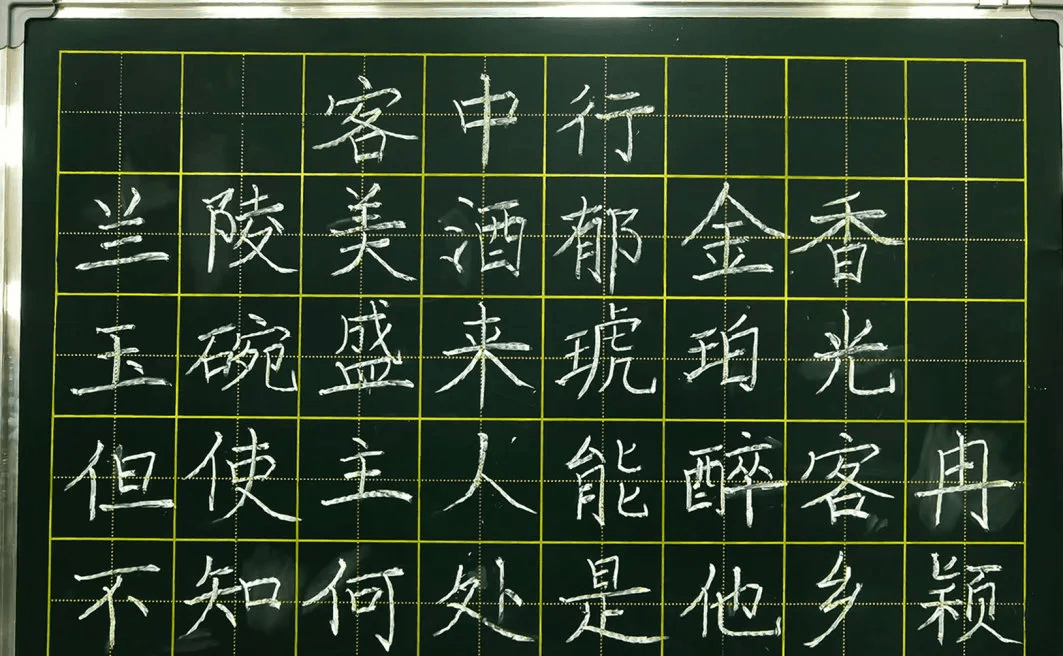 客中行
兰陵美酒郁金香
玉碗盛来琥珀光
但使主人能醉客冉
不知何处是他乡颖